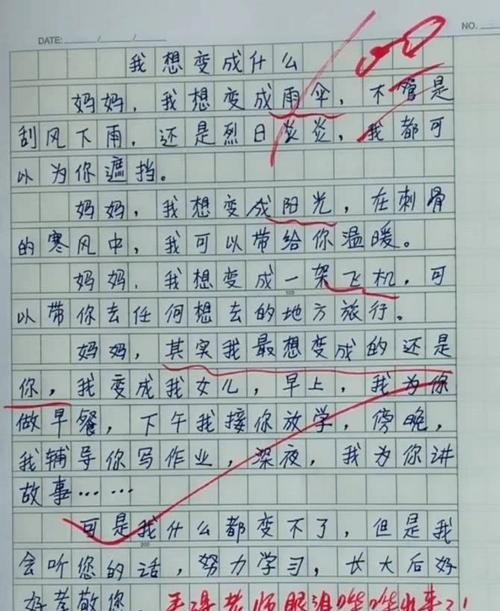 DATE: / /
NO.
我想变成什么
妈妈，我想变成雨伞，不管是
刮风下雨，还是烈日炎炎，我都可
以为你遮挡。
妈妈，我想变成阳光，在刺骨
的寒风中，我可以带给你温暖。
妈妈，我想变成一架飞机，可
以带你去任何想去的地方旅行。
妈妈，其实我最想变成的还是
你，我变成我女儿，早上，我为你
做早餐，下午我接你放学，傍晚，
我辅导你写作业，深夜，我为你讲
故事……
可是我什么都变不了，但是我
会听您的话，努力学习，长大后好
好孝敬您。 老师眼泪哗哗